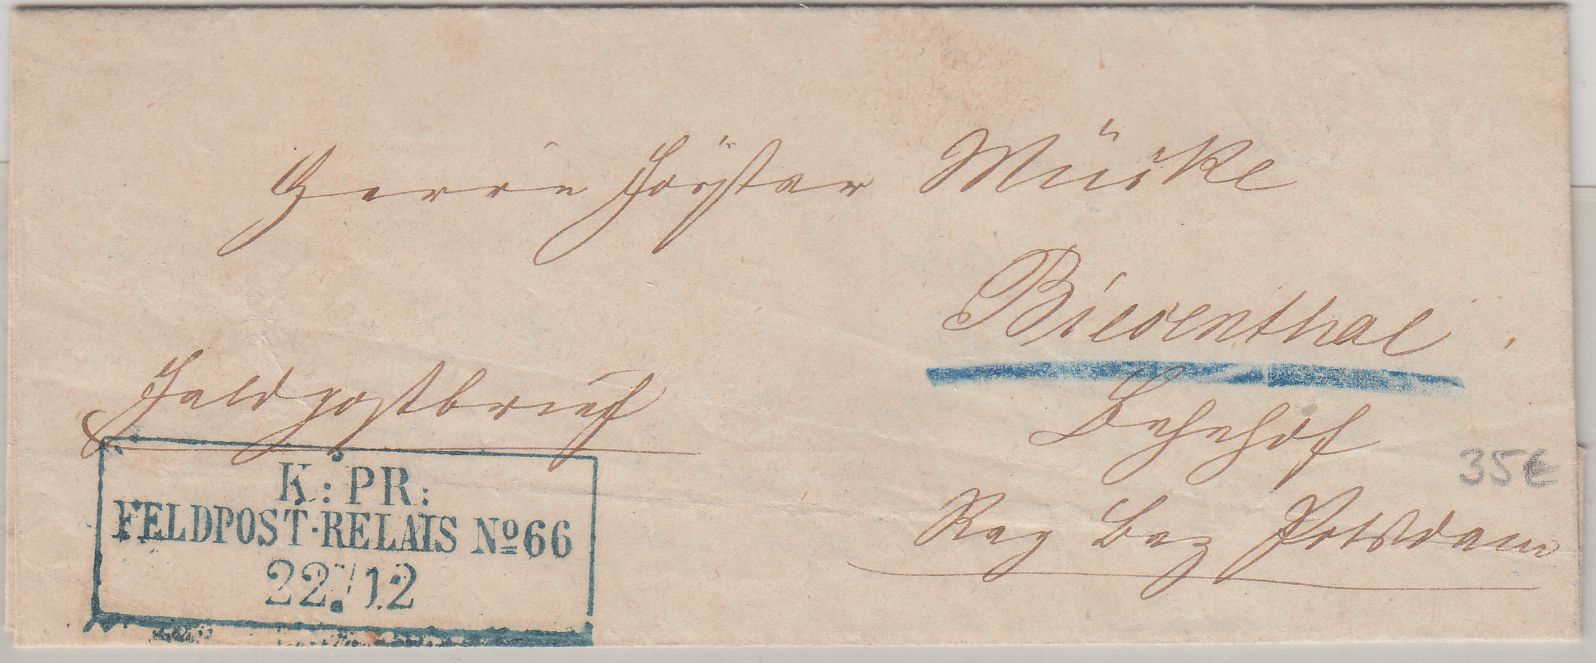 Herrn Förster Mücke
Biesenthal
Feldpostbrief
Bahnhof
Reg Bez Potsdam
K: PR:
FELDPOST-RELAIS Nº66
22/12
35€